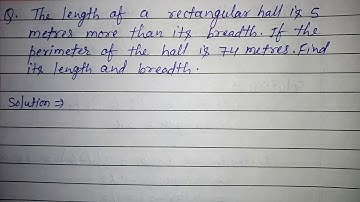 Q. The length of a rectangular hall is 5
metres more than its breadth. If the
perimeter of the hall is 74 metres. Find
its length and breadth.
Solution ⇒